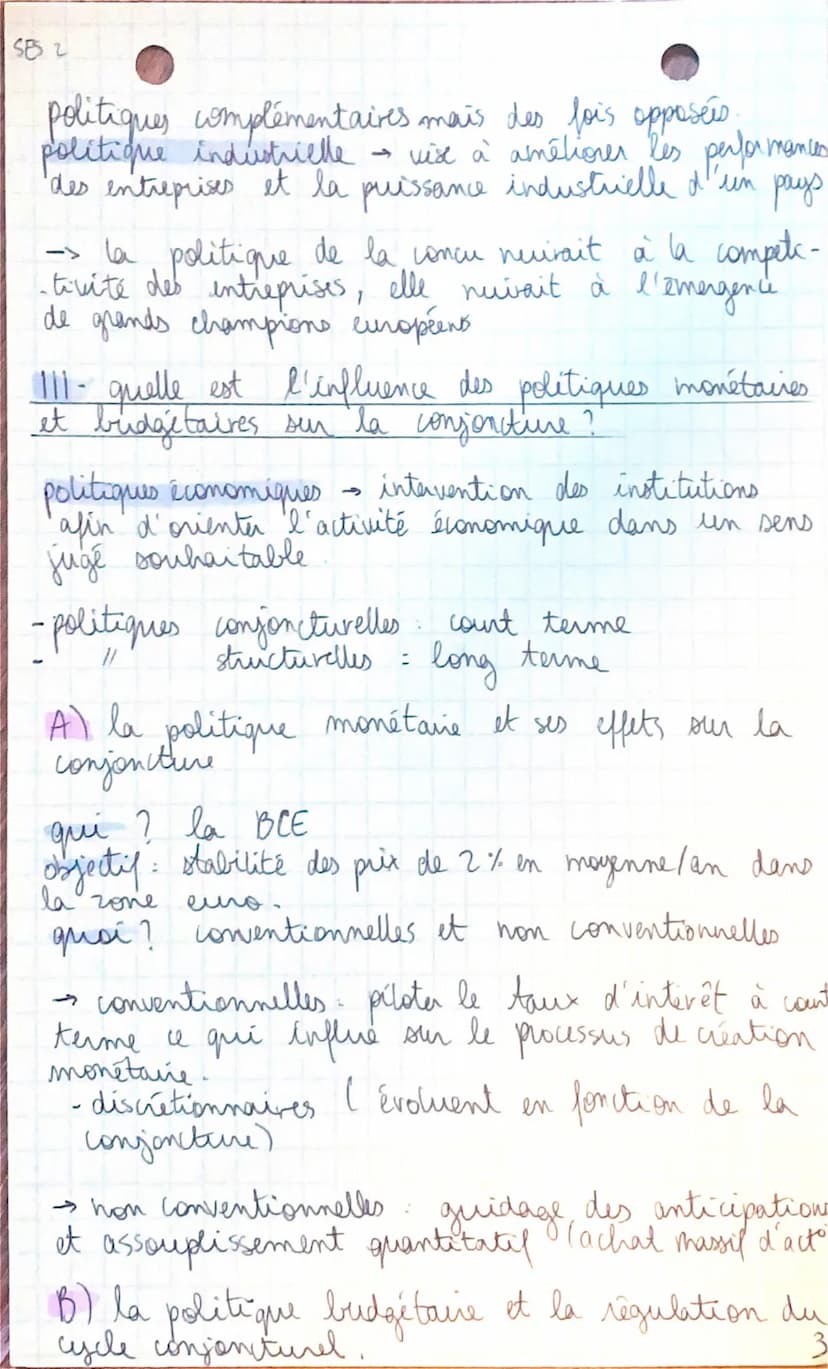 SES 2
politiques complémentaires mais des fois opposées.
politique industrielle → vise à améliorer les performances
des entreprises et la puissance industrielle d'un pays
-> la politique de la concu nuirait à la compéti-
-tivité des entreprises, elle nuirait à l'émergence
de grands champions européens
III- quelle est l'influence des politiques monétaires
et budgétaires sur la conjoncture ?
politiques économiques → intervention des institutions
afin d'orienter l'activité économique dans un sens
jugé souhaitable
- politiques conjoncturelles : court terme
- " structurelles : long terme
A) la politique monétaire et ses effets sur la
conjoncture
qui ? la BCE
objectif : stabilité des prix de 2% en moyenne/an dans
la zone euro.
quoi ? conventionnelles et non conventionnelles
→ conventionnelles : piloter le taux d'intérêt à court
terme ce qui influe sur le processus de création
monétaire.
- discrétionnaires ( évoluent en fonction de la
conjoncture)
→ non conventionnelles : guidage des anticipations
et assouplissement quantitatif (achat massif d'act°
B) la politique budgétaire et la régulation du
cycle conjoncturel.
3